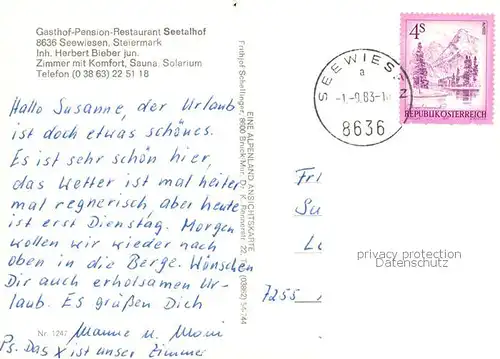 Gasthof-Pension-Restaurant Seetalhof
8636 Seewiesen, Steiermark
Inh. Herbert Bieber jun.
Zimmer mit Komfort, Sauna, Solarium
Telefon (0 38 63) 22 5 18
Hallo Susanne, der Urlaub
ist doch etwas schönes.
Es ist sehr schön hier,
das Wetter ist mal heiter
mal regnerisch, aber heute
ist erst Dienstag. Morgen
wollen wir wieder nach
oben in die Berge. Wünschen
Dir auch erholsamen Ur-
laub. Es grüßen Dich
Manne u. Moni
Ps. Das X ist unser Zimmer
Nr. 1247
EINE ALPENLAND ANSICHTSKARTE
Frithjof Schellinger, 8600 Bruck/Mur, Dr. K. Rennerstr. 22, Tel. (03862) 54 144
SEEWIES
a
-1.-9.83-1
8636
4S
REPUBLIK ÖSTERREICH
Fr
Su
L
7255
privacy protection
Datenschutz